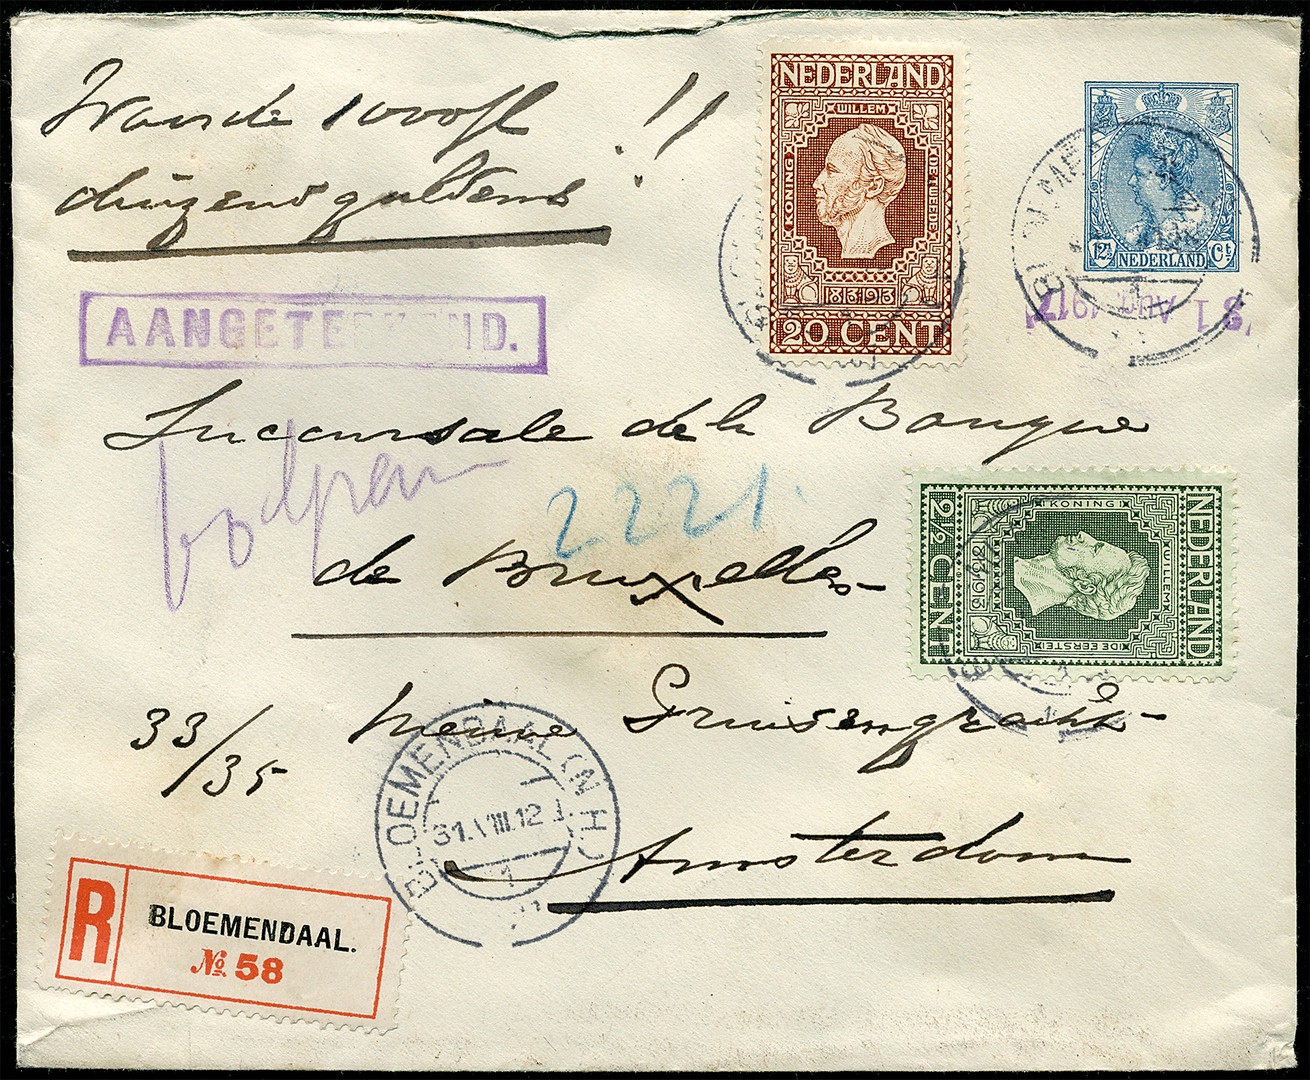 Waarde 1000fl !!
duizend guldens
AANGETEEKEND.
NEDERLAND
WILLEM
KONING
DE TWEEDE
1813 1913
20 CENT
12½ NEDERLAND Ct
31 AUG. 1917
Succursale de la Banque
2221.
de Bruxelles
NEDERLAND
WILLEM
KONING
DE EERSTE
1813 1913
2½ CENT
33/35
Heeren Gracht
BLOEMENDAAL (N.H.)
31.VIII.12
1
Amsterdam
R
BLOEMENDAAL.
№ 58